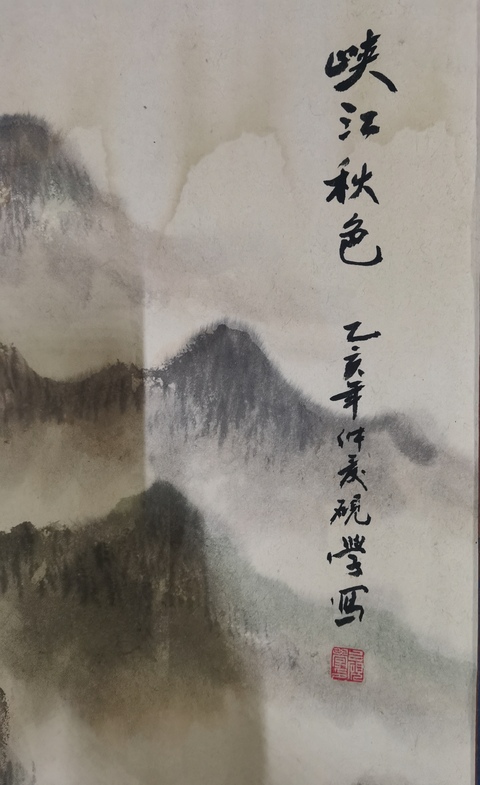 峡江秋色
乙亥年仲夏砚學寫